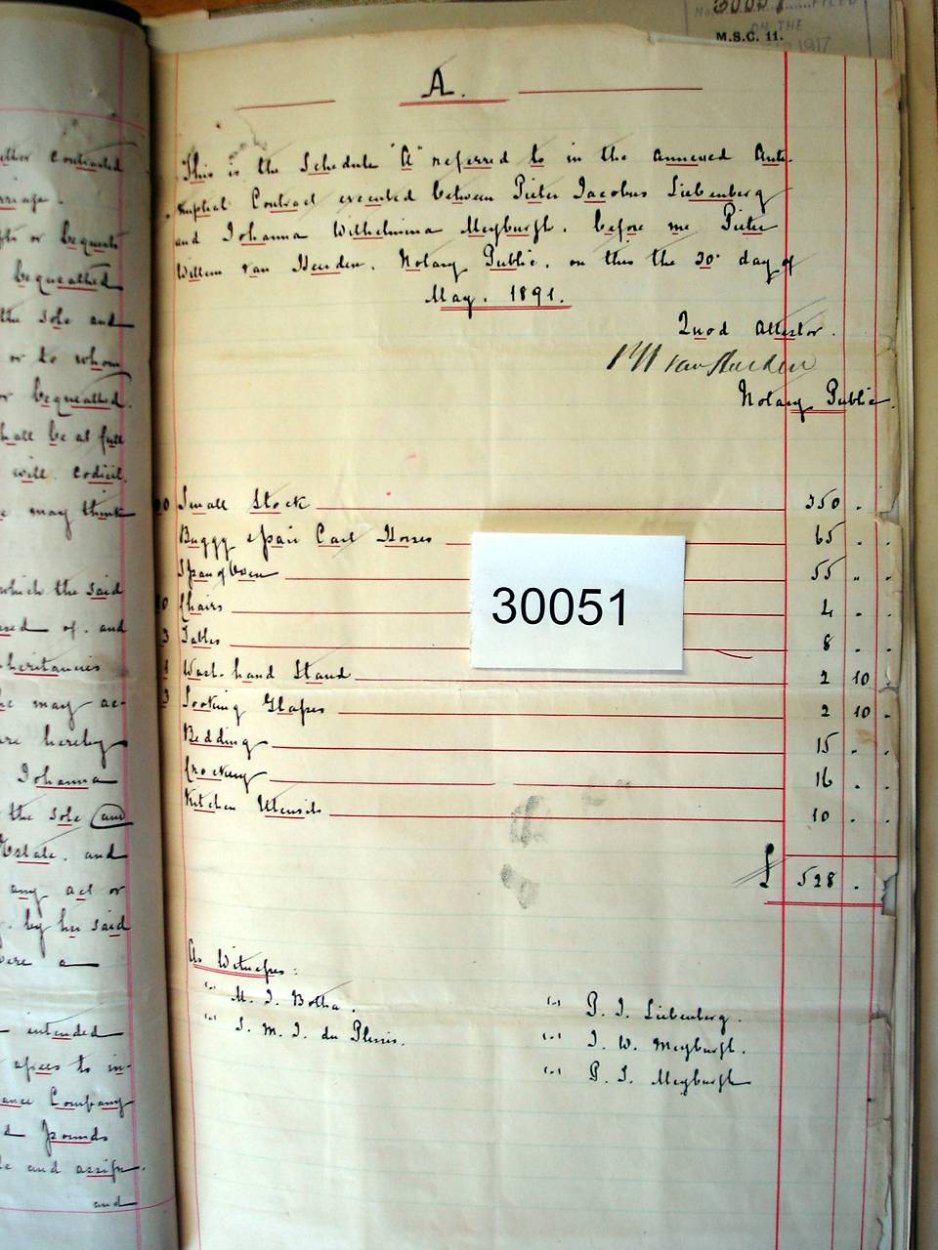 30051
M.S.C. 11.
1917
A.
This is the Schedule "A" referred to in the annexed Ante-
nuptial Contract executed between Pieter Jacobus Liebenberg
and Johanna Wilhelmina Meyburgh. before me Pieter
Willem van Heerden. Notary Public. on this the 30. day of
May. 1891.
Quod Attestor.
PW van Heerden
Notary Public.
Small Stock 350 . .
Buggy & pair Cart Horses 65 . .
Span of Oxen 55 " .
Chairs 4 . .
3 Tables 8 . .
1 Wash-hand Stand 2 10 .
3 Looking Glasses 2 10 .
Bedding 15 . .
Crockery 16 . .
Kitchen Utensils 10 . .
£ 528 .
30051
As Witnesses:
M. J. Botha.
J. M. J. du Plessis.
P. J. Liebenberg.
J. W. Meyburgh.
P. J. Meyburgh
contracted
or bequests
bequeathed
the sole and
or to whom
or bequeathed.
shall be at full
will codicil.
may think
which the said
of. and
inheritances
may ac-
are hereby
Johanna
the sole and
Estate. and
any act or
by her said
were a
intended
agrees to in-
Company
pounds
and assign.
and